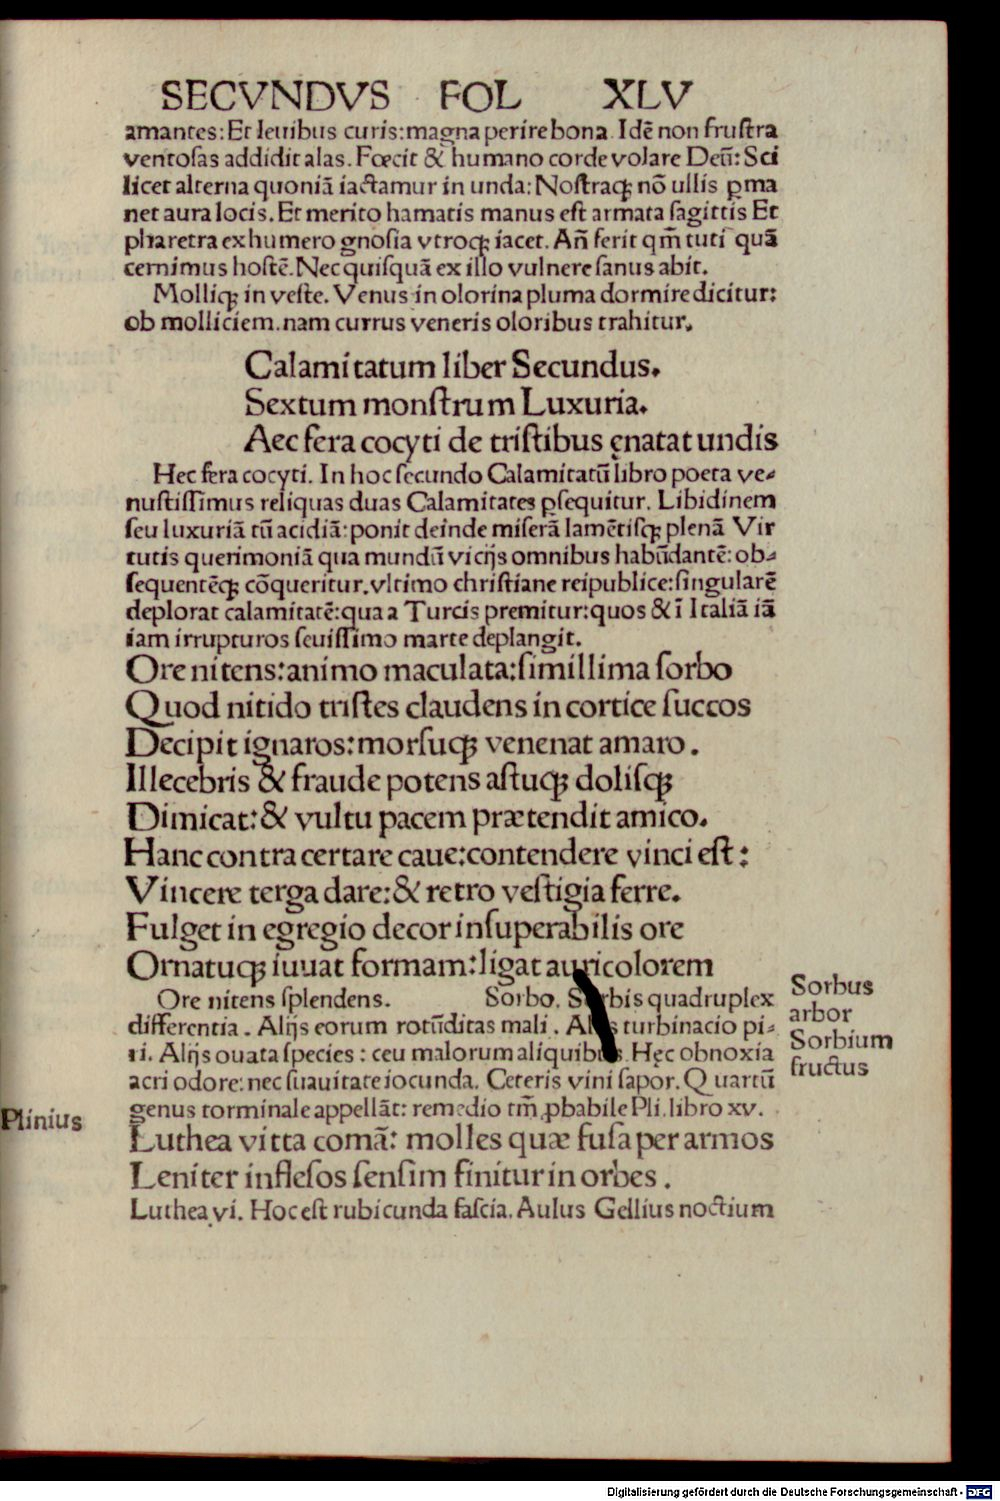 SECVNDVS FOL XLV
amantes: Et leuibus curis: magna perire bona. Idē non frustra
ventosas addidit alas. Fœcit & humano corde volare Deū: Sci
licet alterna quoniā iactamur in unda: Nostraq; nō ullis ꝑma
net aura locis. Et merito hamatis manus est armata sagittis Et
pharetra ex humero gnosia vtroq; iacet. Añ ferit qm̄ tuti quā
cernimus hostē. Nec quisquā ex illo vulnere sanus abit.
Molliq; in veste. Venus in olorina pluma dormire dicitur:
ob molliciem. nam currus veneris oloribus trahitur.
Calamitatum liber Secundus.
Sextum monstrum Luxuria.
Aec fera cocyti de tristibus ęnatat undis
Hec fera cocyti. In hoc secundo Calamitatū libro poeta ve-
nustissimus reliquas duas Calamitates ꝓsequitur. Libidinem
seu luxuriā tū acidiā: ponit deinde miserā lamētisq; plenā Vir
tutis querimoniā qua mundū vicijs omnibus habūdantē: ob-
sequentēq; cōqueritur. vltimo christiane reipublice: singularē
deplorat calamitatē: qua a Turcis premitur: quos & ī Italiā iā
iam irrupturos seuissimo marte deplangit.
Ore nitens: animo maculata: simillima sorbo
Quod nitido tristes claudens in cortice succos
Decipit ignaros: morsuq; venenat amaro.
Illecebris & fraude potens astuq; dolisq;
Dimicat: & vultu pacem prætendit amico.
Hanc contra certare caue: contendere vinci est:
Vincere terga dare: & retro vestigia ferre.
Fulget in egregio decor insuperabilis ore
Ornatuq; iuuat formam: ligat auricolorem
Ore nitens splendens. Sorbo. Sorbis quadruplex
differentia. Alijs eorum rotūditas mali. Alijs turbinacio pi-
ri. Alijs ouata species: ceu malorum aliquibus. Hęc obnoxia
acri odore: nec suauitate iocunda. Ceteris vini sapor. Quartū
genus torminale appellāt: remedio tm̄ ꝓbabile Pli. libro xv.
Sorbus
arbor
Sorbium
fructus
Plinius
Luthea vitta comā: molles quæ fusa per armos
Leniter inflesos sensim finitur in orbes.
Luthea vi. Hoc est rubicunda fascia. Aulus Gellius noctium
Digitalisierung gefördert durch die Deutsche Forschungsgemeinschaft - DFG